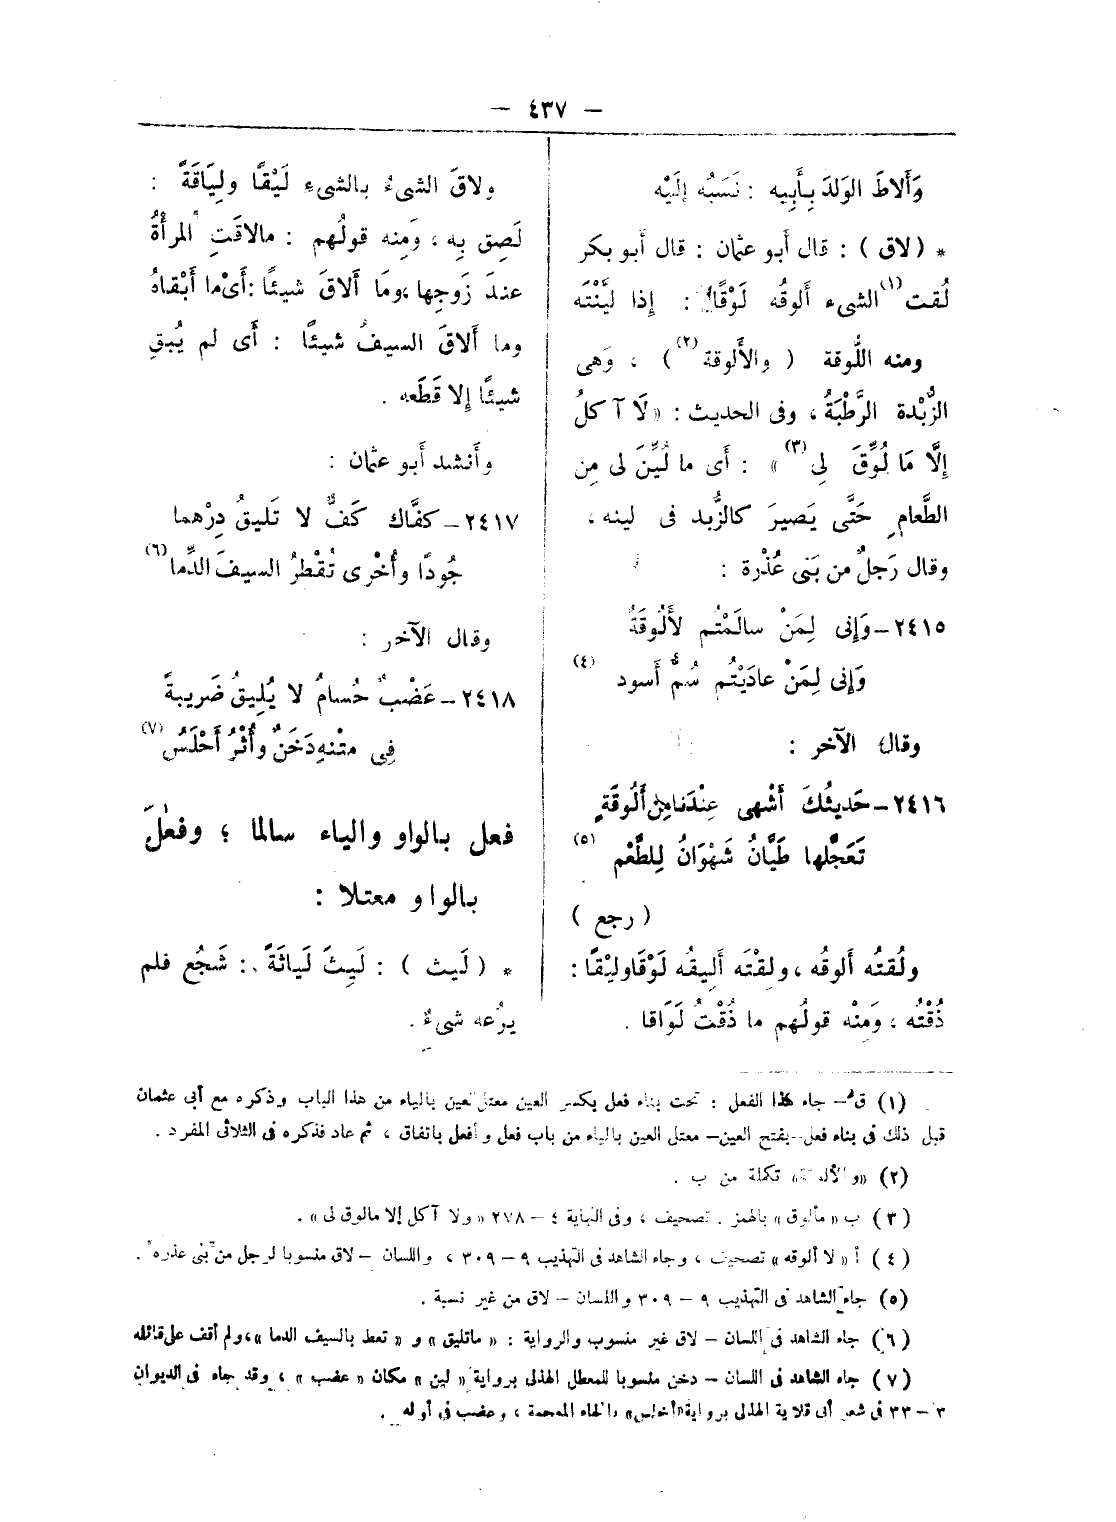 — ٤٣٧ —
وَألاطَ الوَلدَ بِأَبيه : نَسَبُه إلَيْه
* ( لاق ) : قال أبو عثمان : قال أبو بكر
لُقت(١) الشيء ألوقُه لَوْقًا : إذا ليَّنْتَه
ومنه اللُّوقة ( والأَلوقة(٢) ) ، وَهى
الزُّبْدة الرَّطْبَةُ ، وفى الحديث : « لَا آكلُ
إلَّا مَا لُوِّقَ لِى(٣) » : أى ما لُيِّنَ لى مِن
الطَّعامِ حَتَّى يَصيرَ كالزُّبد فى لينه ،
وقال رَجلٌ من بَنى عُذْرة :
٢٤١٥ـ وَإنى لِمَنْ سالَمْتُم لأَلُوقَةُ
وَإنى لِمَنْ عادَيْتُم سُمُّ أَسود (٤)
وقال الآخر :
٢٤١٦ـ حَديثُكَ أَشْهى عِنْدَنا مِن أَلُوقَةٍ
تَعَجَّلها طَيَّانُ شَهْوَانُ لِلطَّعْم (٥)
( رجع )
ولُقتُه ألوقه ، ولقْتَه أليقُه لَوْقًا وليْقًا :
ذُقْتُه ، وَمنْه قولُهم ما ذُقْتُ لَوَاقا .
ولاقَ الشىءُ بالشىءِ لَيْقًا ولِيَاقَةً :
لَصِق بِه ، وَمِنه قولُهم : مالاقَتِ المرأَةُ
عندَ زَوجِها ، وَمَا أَلاقَ شيئًا : أَىْ ما أَبْقاهُ
وما أَلاقَ السيفُ شيئًا : أَى لم يُبقِ
شيئًا إلا قَطَعه .
وأَنشد أبو عثمان :
٢٤١٧ـ كفَّاك كَفٌّ لا تَليقُ دِرْهما
جُودًا وأُخْرى تُقْطرُ السيفَ الدِّما (٦)
وقال الآخر :
٢٤١٨ـ عَضْبٌ حُسامُ لا يُليقُ ضَريبةً
فِى متْنه دَخَنٌ وأُثْرُ أَحْلَسُ (٧)
فعل بالواو والياء سالما ؛ وفعلَ
بالواو معتلا :
* ( لَيث ) : لَيِثَ لَياثَةً : شَجُع فلم
يرُعه شىءٌ .
(١) ق – جاء هذا الفعل : تحت بناء فعل بكسر العين معتل العين بالياء من هذا الباب وذكره مع أبى عثمان
قبل ذلك فى بناء فعل – بفتح العين – معتل العين بالياء من باب فعل وأفعل باتفاق ، ثم عاد فذكره فى الثلاثى المفرد .
(٢) «والألوقة» تكملة من ب .
(٣) ب « مألوق » بالهمز . تصحيف ، وفى النهاية ٤ – ٢٧٨ « ولا آكل إلا مالوق لى » .
(٤) أ « لا ألوقه » تصحيف ، وجاء الشاهد فى التهذيب ٩ – ٣٠٩ ، واللسان – لاق منسوبا لرجل من بنى عذره .
(٥) جاء الشاهد فى التهذيب ٩ – ٣٠٩ واللسان – لاق من غير نسبة .
(٦) جاء الشاهد فى اللسان – لاق غير منسوب والرواية : « ماتليق » و « تعط بالسيف الدما » ، ولم أقف على قائله
(٧) جاء الشاهد فى اللسان – دخن منسوبا للمعطل الهذلى برواية « لين » مكان « عضب » ، وقد جاء فى الديوان
٣ – ٣٣ فى شعر أبى قلابة الهذلى برواية «أخلس» بالخاء المعجمة ، وعضب فى أوله .